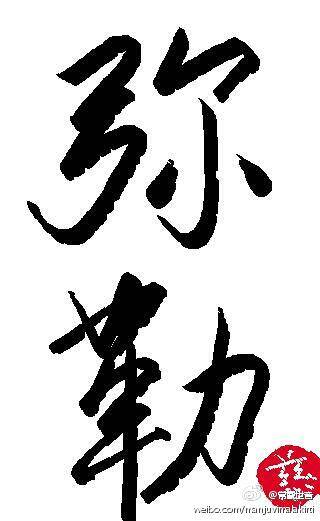 弥
勒
weibo.com/manjuvimalakirti